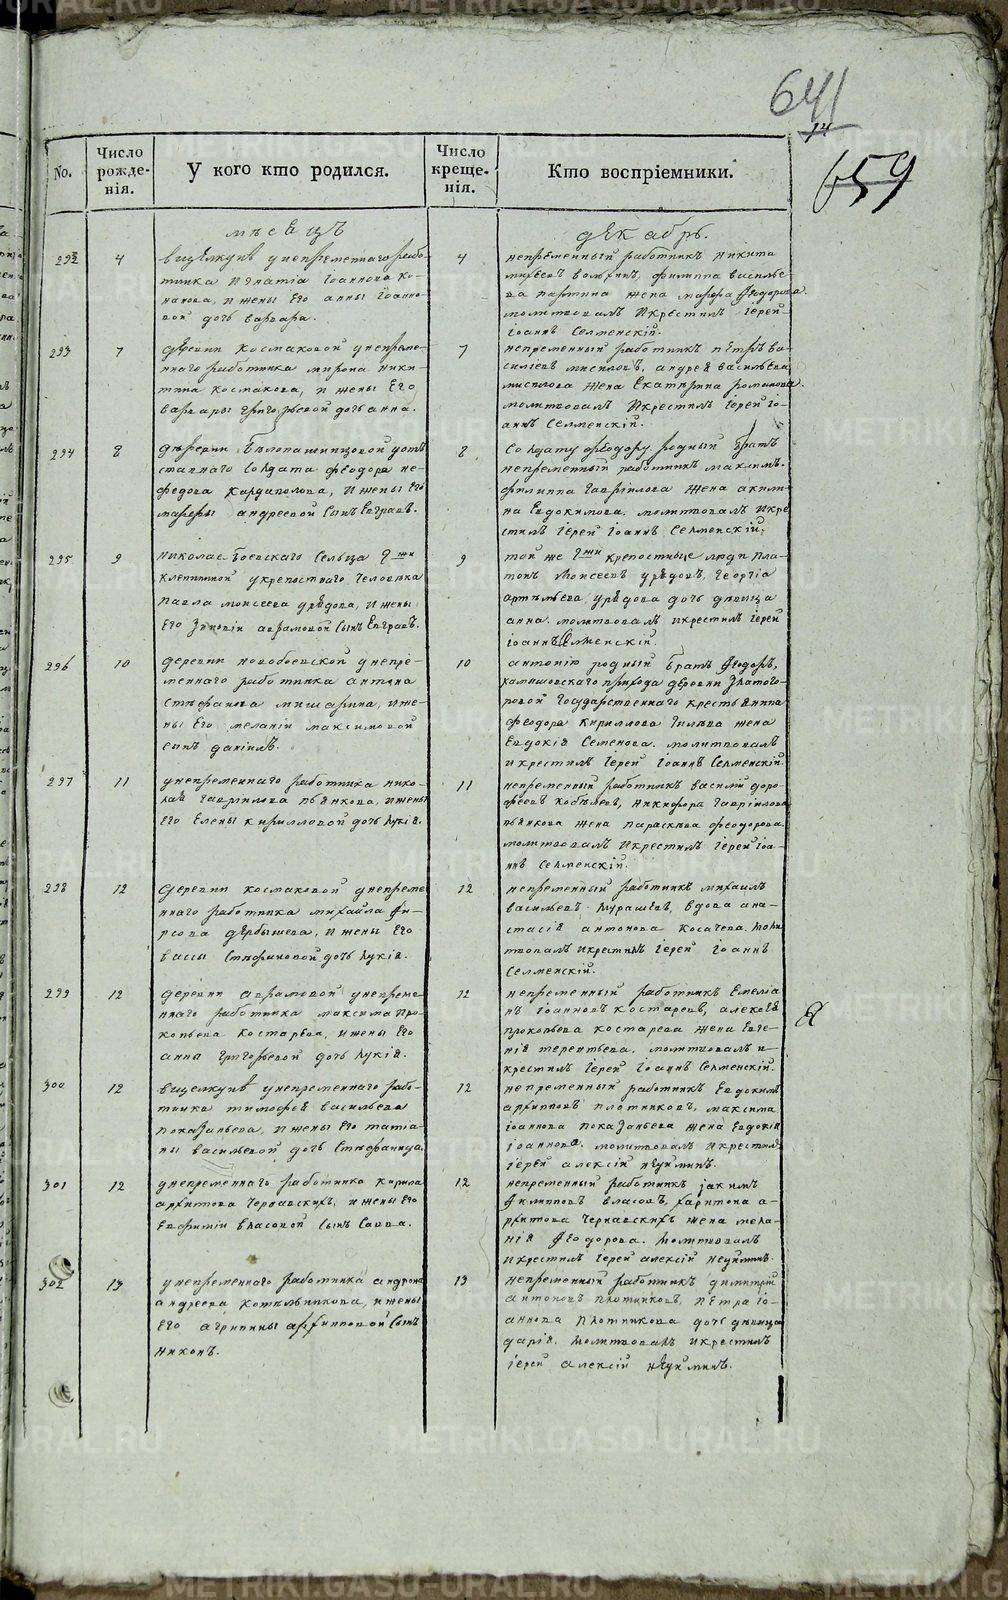 641
659
No.
Число рожденія.
У кого кто родился.
Число крещенія.
Кто воспріемники.
мѣсяцъ
декабрь.
292
4
вщелкунѣ унепременнаго рабо-
тника Игнатія Іоаннова Ко-
накова, и жены его анны Іоанно-
вой дочь варвара.
4
непременный работникъ никита
михеевъ волохинъ, филиппа василье-
ва партина жена марфа Феодорова.
молитвовалъ Икрестилъ Іерей
Іоаннъ Селменскій.
293
7
деревни Космаковой унепреме-
ннаго работника мирона ники-
тина космакова, и жены Его
варвары григорьевой дочь анна.
7
непременный работникъ пЕтръ ва-
сильевъ мисиловъ, андрея васильева
мисилова жена Екатерина романова.
молитвовалъ Икрестилъ Іерей Іо-
аннъ Селменскій.
294
8
деревни Белопашинцовой уот
ставнаго Солдата феодора не-
федова Кардаполова, И жены Его
марфы андреевой Сынъ Евграфъ.
8
Солдату феодору родный братъ
непременный работникъ максимъ.
филиппа гаврилова жена акили-
на Евдокимова. молитвовалъ Икре
стилъ Іерей Іоаннъ Селменскій.
295
9
николаебоевскаго Сельца Гжи
клепининой укрепостнаго человѣка
Павла моисеева урѣдова, И жены
Его Зиновіи аврамовой Сынъ Евграфъ.
9
той же Гжи крепостные люди пла-
тонъ Моисеевъ урѣдовъ, Георгіа
артемьева урѣдова дочь дѣвица
анна. молитвовалъ икрестилъ Іерей
ІоаннъСелменскій.
296
10
деревни новобоевской унепре-
меннаго работника антона
Стефанова мишарина, иже-
ны Его меланіи максимовой
сынъ даніилъ.
10
антонію родный братъ Феодоръ,
камышовскаго прихода деревни Златого-
ровой Государственнаго крестьянина
феодора Кириллова Гилева жена
Евдокія Семенова. молитвовалъ
икрестилъ Іерей Іоаннъ Селменскій.
297
11
унепременнаго работника нико-
лая гаврилова пьянкова, ижены
Его Елены кирилловой дочь лукія.
11
непременный работникъ василій доро-
феевъ кобелевъ, никифора гаврилова
пьянкова жена параскева феодорова.
молитвовалъ Икрестилъ Іерей Іоа-
ннъ Селменскій.
298
12
деревни космаковой унепреме
ннаго работника михайла фи-
рсова дербышева, ижены Его
вассы Стефановой дочь лукія.
12
непременный работникъ михаилъ
васильевъ Мурашевъ, вдова ана-
стасія антонова косачева. Моли
твовалъ икрестилъ Іерей Іоаннъ
Селменскій.
299
12
деревни аврамовой унепреме
ннаго работника максима про-
копьева Костарева, ижены Его
анны Григорьевой дочь лукія.
12
непременный работникъ Емеліа
нъ Іоанновъ костаревъ, алексея
прокопьева костарева жена Евге-
нія терентьева. молитвовалъ и-
крестилъ Іерей Іоаннъ Селменскій.
300
12
вщелкунѣ унепременнаго рабо-
тника тимофея васильева
показаньева, И жены его татіа-
ны васильевой дочь Стефанида.
12
непременный работникъ Евдокимъ
архиповъ плотниковъ, максима
Іоаннова показаньева жена Евдокія
Іоаннова. молитвовалъ икрестилъ
іерей алексій неуиминъ.
301
12
унепременнаго работника Кирила
архипова Чернавскихъ, ижены его
Евфиміи власовой Сынъ Савва.
12
непременный работникъ јакимъ
Филиповъ власовъ, харитона а-
рхипова Чернавскихъ жена мела-
нія Феодорова. Молитвовалъ
икрестилъ іерей алексій неуиминъ.
302
13
унепременнаго работника андрона
андреева Котельникова, ижены
его агрипины архиповой Сынъ
никонъ.
13
непременный работникъ димитрій
антоновъ плотниковъ, пЕтра Іо-
аннова плотникова дочь дѣвица
дарія. Молитвовалъ икрестилъ
іерей алексій неуиминъ.
METRIKI.GASO-URAL.RU